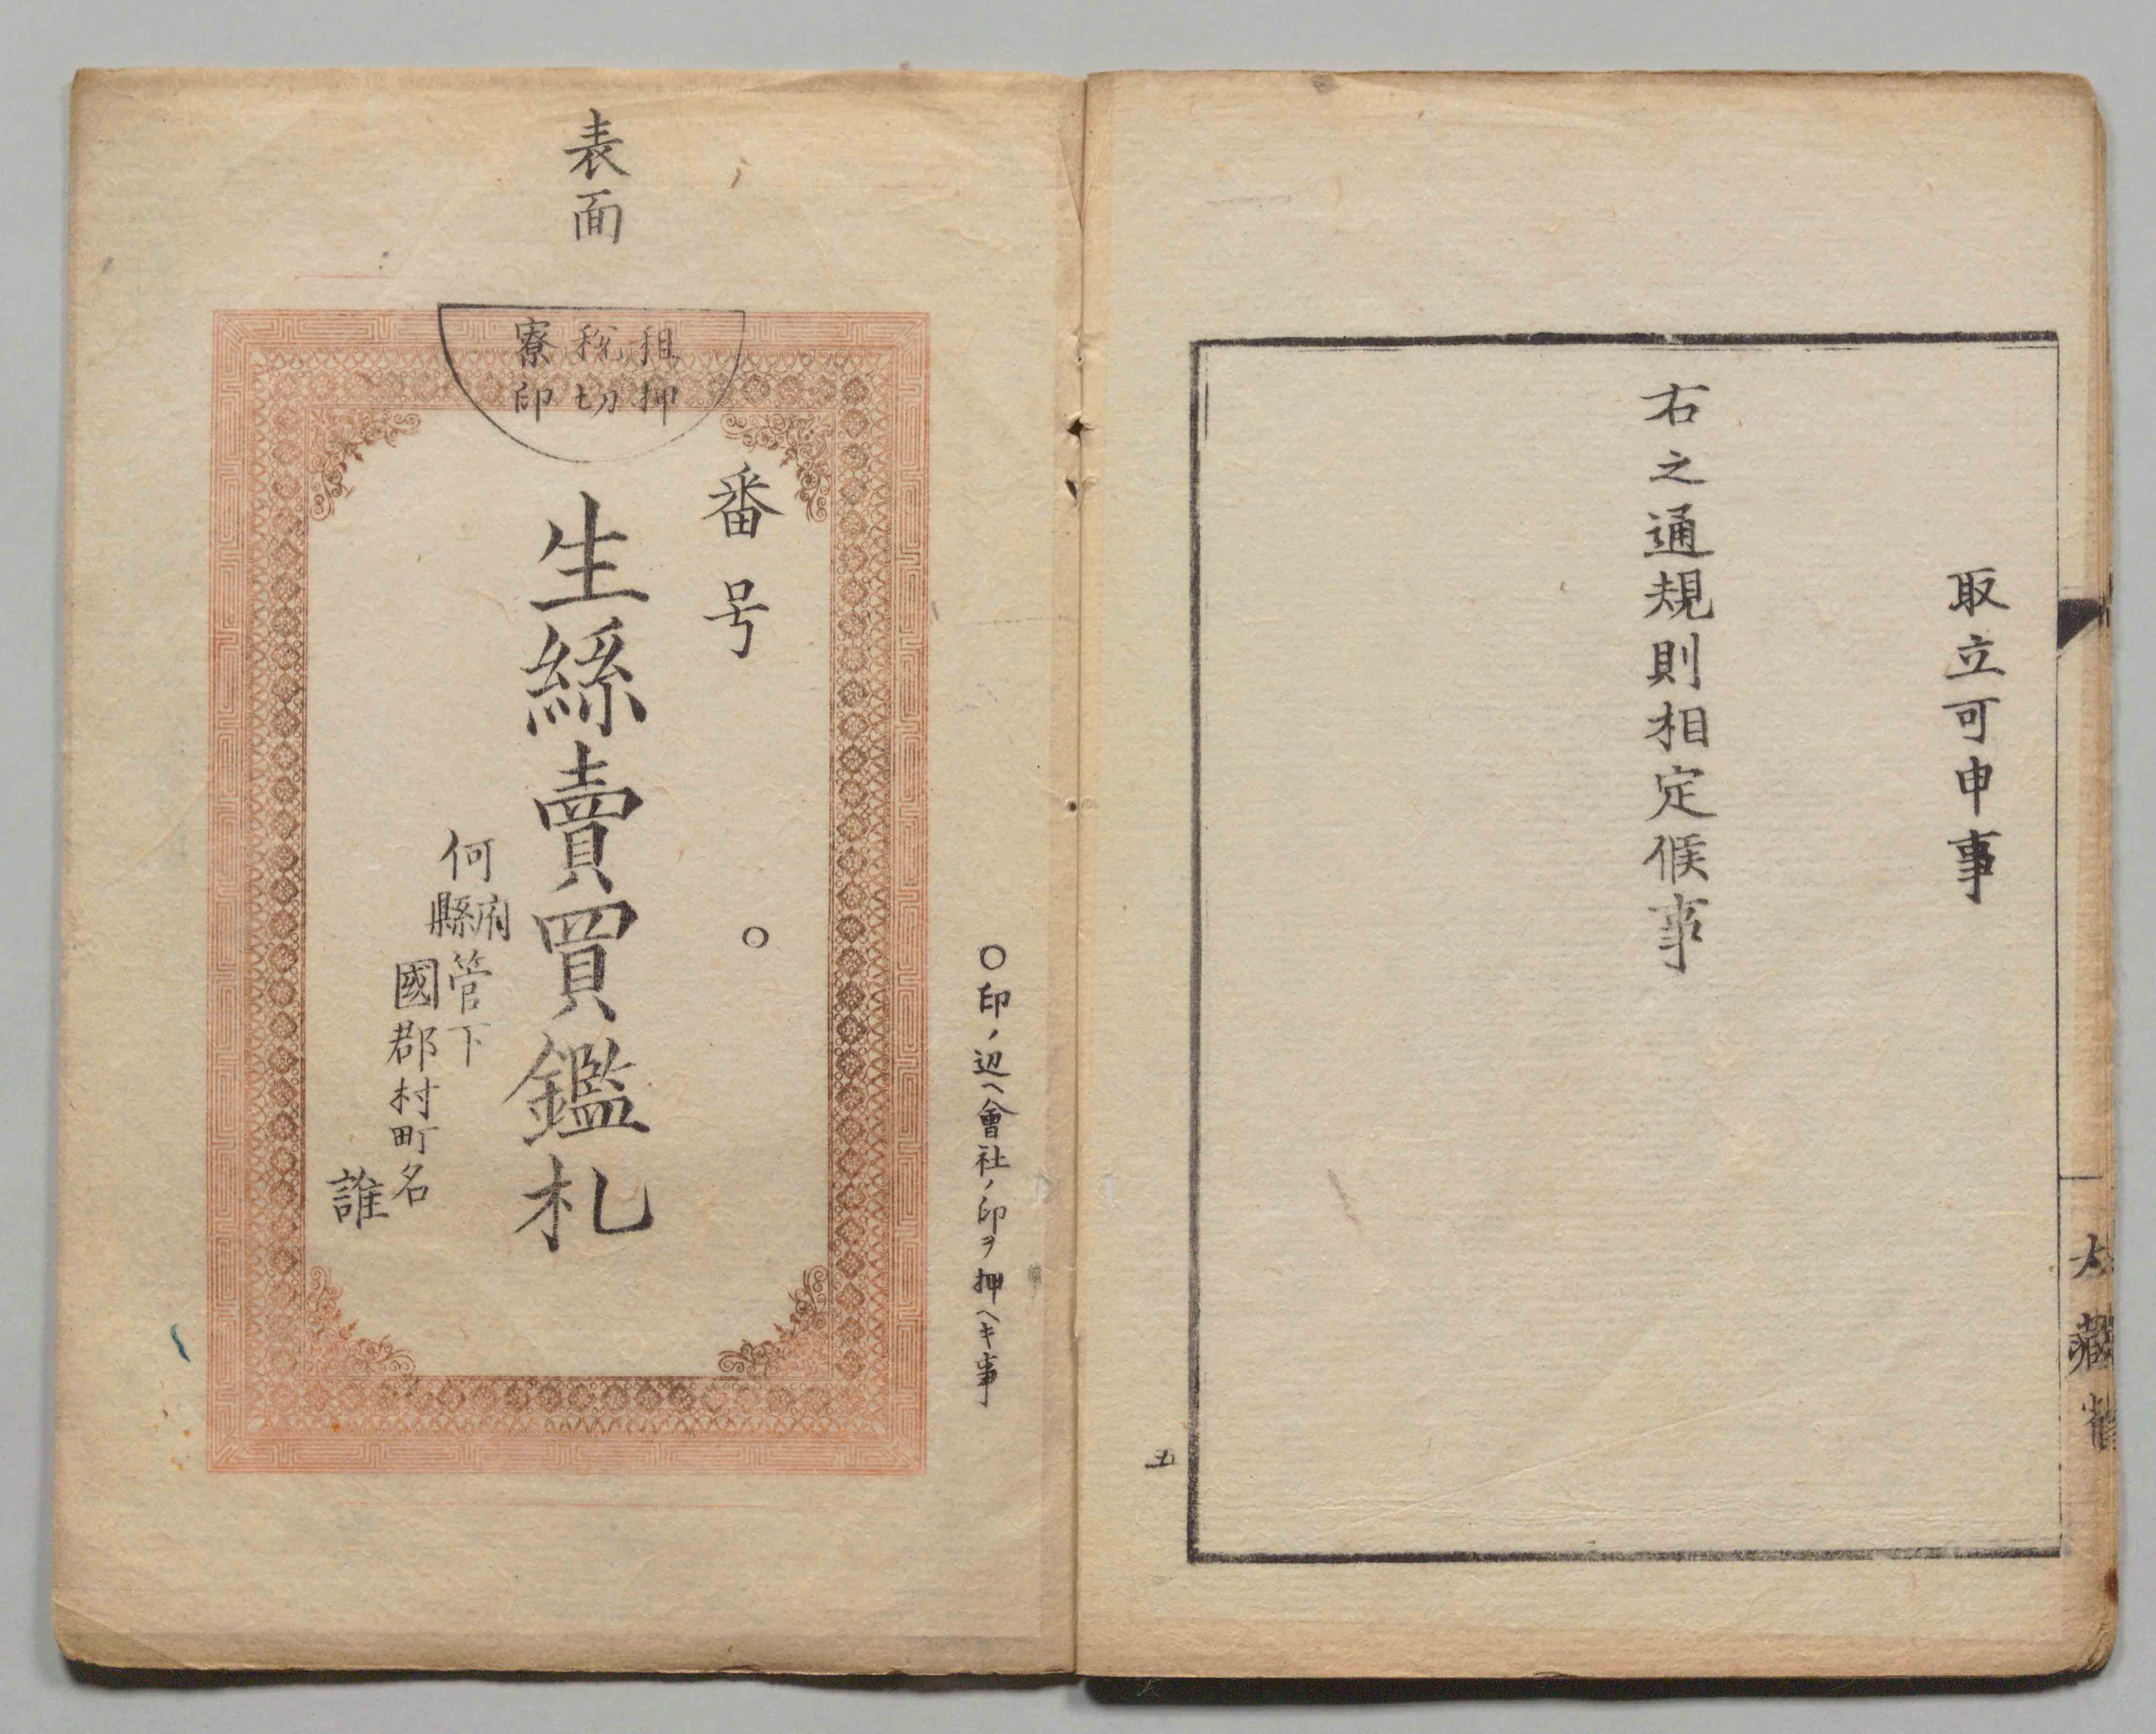 取立可申事
右之通規則相定候事
大藏省
五
○印ノ辺ヘ會社ノ印ヲ押ヘキ事
表面
租税寮
押切印
番号
○
生絲賣買鑑札
何府縣管下
國郡村町名
誰